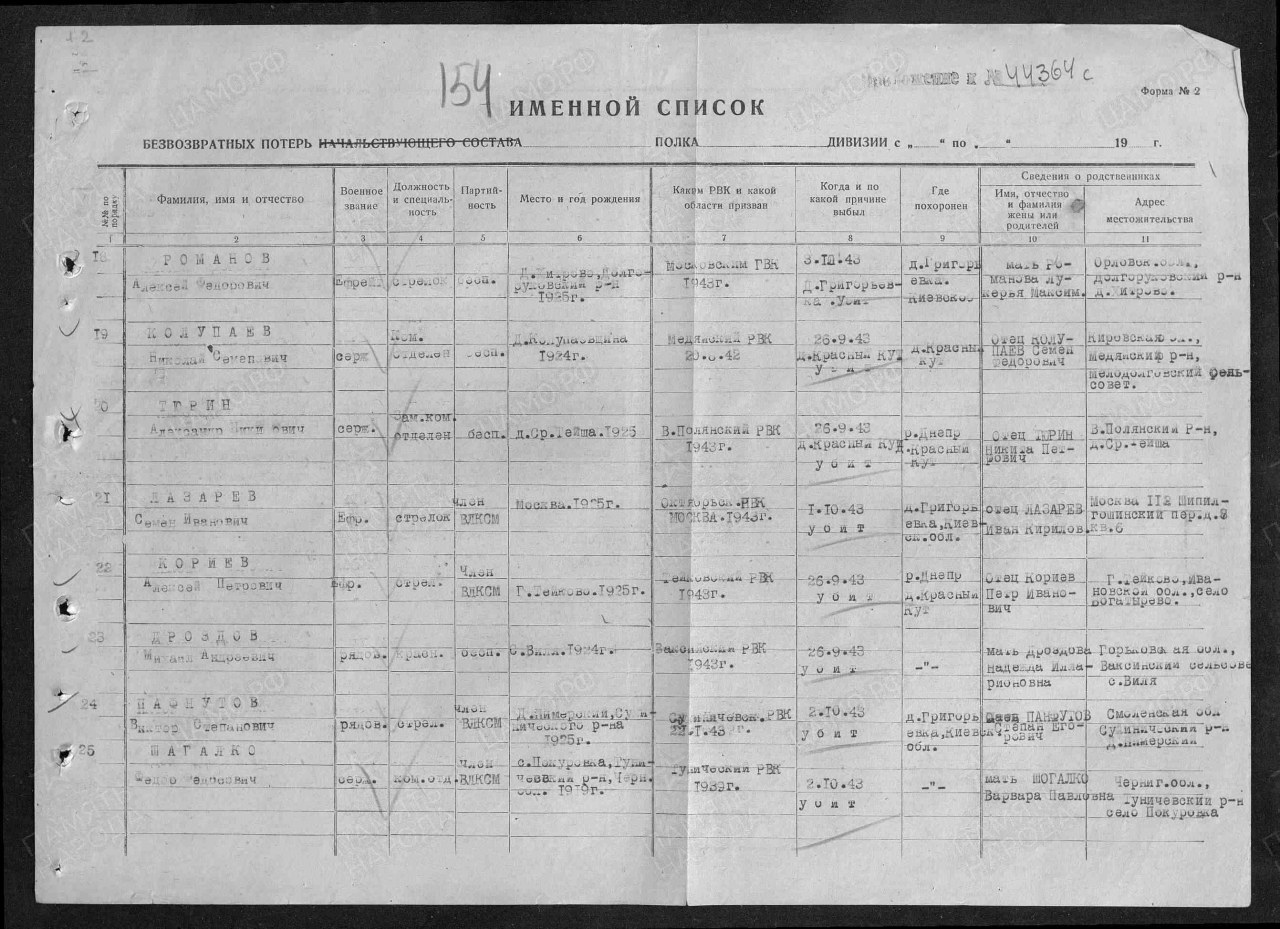 154
44364 с
Форма № 2
ИМЕННОЙ СПИСОК
БЕЗВОЗВРАТНЫХ ПОТЕРЬ НАЧАЛЬСТВУЮЩЕГО СОСТАВА ПОЛКА ДИВИЗИИ с „ “ по „ “ 19 г.
№№ по порядку
Фамилия, имя и отчество
Военное звание
Должность и специаль-ность
Партий-ность
Место и год рождения
Каким РВК и какой области призван
Когда и по какой причине выбыл
Где похоронен
Сведения о родственниках
Имя, отчество и фамилия жены или родителей
Адрес местожительства
1 2 3 4 5 6 7 8 9 10 11
18 РОМАНОВ Московским ГВК 3.III.43 д.Григорь мать Ро- Орловск.обл.,
Алексей Федорович Ефрейт стрелок бесп. Д.Хитрово,Долго- 1943г. Д.Григорьев- евка. манова Лу- Долгоруковский р-н
руковский р-н 1925г. ка .Убит Киевской керья Максим. д.Хитрово.
19 КОЛУПАЕВ Ком. д.Колупаевщина Медянский РВК 26.9.43 отец КОЛУ- Кировская
Николай Семенович серж отделен бесп. 1924г. д.Красный Кут д.Красный ПАЕВ Семен Медянский р-н,
убит Кут Федорович совет.
20 ТЮРИН Зам.ком. 26.9.43
Александр серж. отделен бесп. д.Ср.Тейша.1925 В.Полянский РВК р.Днепр Отец ТЮРИН В.Полянский Р-н,
1943г. д.Красный Кут д.Красный Никита Пет- д.Ср.Тейша
убит Кут рович
21 ЛАЗАРЕВ Член Москва.1925г. Октябрьск.РВК 1.10.43 д.Григорь отец ЛАЗАРЕВ Москва 112
Семен Иванович Ефр. стрелок ВЛКСМ МОСКВА.1943г. убит евка,Киев- Иван Кирилов. пер.д.8
ск.обл. кв.6
22 КОРИЕВ Член Тейковский РВК 26.9.43 р.Днепр Отец Кориев Г.Тейково,Ива-
Алексей Петрович Ефр. стрел. ВЛКСМ Г.Тейково.1925г. 1943г. убит д.Красный Петр Ивано- новской обл.,село
Кут вич Богатырево.
23 ДРОЗДОВ
Михаил Андреевич рядов. бесп. с.Виля.1924г. РВК 26.9.43 мать Дроздова Горьковская обл.,
1943г. убит -"- надежда Илла- Ваксинский сельсове
рионовна с.Виля
24 ПАФНУТОВ Член Д.Химерский,Сухи- Сухиничевск.РВК 2.10.43 д.Григорь Смоленская обл
Виктор Степанович рядов. стрел. ВЛКСМ нического р-на убит евка,Киевск. Степан Его- Сухинический р-н
1925г. обл. рович д.Химерский
25 ШАГАЛКО Член с.Покуровка,Туни- Тунический РВК
Федор Федосович серж. ком.отд. ВЛКСМ чевский р-н,Черн. 1939г. 2.10.43 -"- мать ШОГАЛКО Черниг.обл.,
обл. 1919г. убит Варвара Павловна Туничевский р-н
село Покуровка